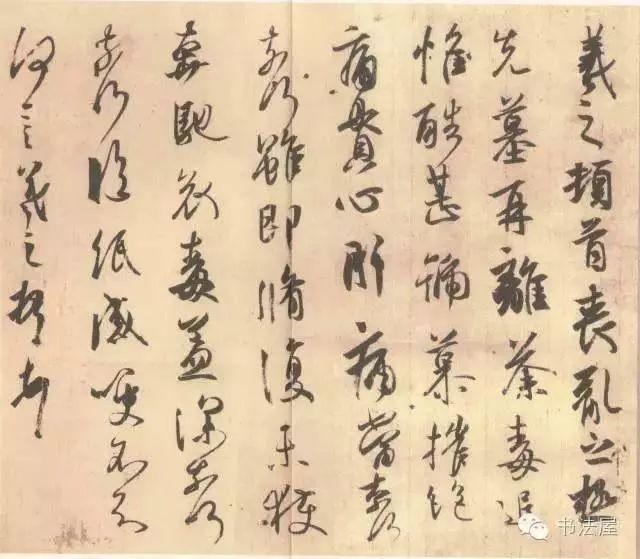 羲之頓首喪亂之極
先墓再離荼毒追
惟酷甚號慕摧絕
痛貫心肝痛當奈何
奈何雖即脩復未獲
奔馳哀毒益深奈何
奈何臨紙感哽不知
何言羲之頓首
书法屋